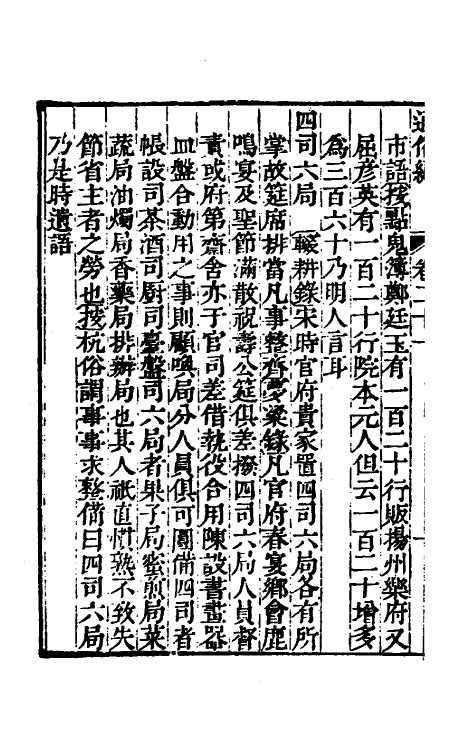 通俗編　卷二十一
市語按點鬼簿鄭廷玉有一百二十行販揚州樂府又
屈彥英有一百二十行院本元人但云一百二十增多
為三百六十乃明人言耳
四司六局　輟耕錄宋時官府貴家置四司六局各有所
掌故筵席排當凡事整齊夢粱錄凡官府春宴鄉會鹿
鳴宴及聖節滿散祝壽公筵俱差撥四司六局人員督
責或府第齋舍亦于官司差借執役合用陳設書畫器
皿盤合動用之事則顧喚局分人員俱可圓備四司者
帳設司茶酒司廚司臺盤司六局者果子局蜜煎局菜
蔬局油燭局香藥局排辦局也其人祇直慣熟不致失
節省主者之勞也按杭俗謂事事求整備曰四司六局
乃是時遺語